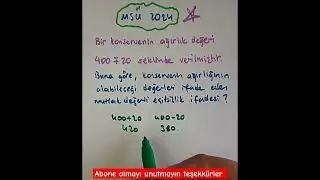 MSÜ 2024
Bir konservenin ağırlık değeri
400 ∓ 20 şeklinde verilmiştir.
Buna göre, konservenin ağırlığının
alabileceği değerleri ifade eden
mutlak değerli eşitsizlik ifadesi?
400+20 400-20
420 380.
Abone olmayı unutmayın teşekkürler